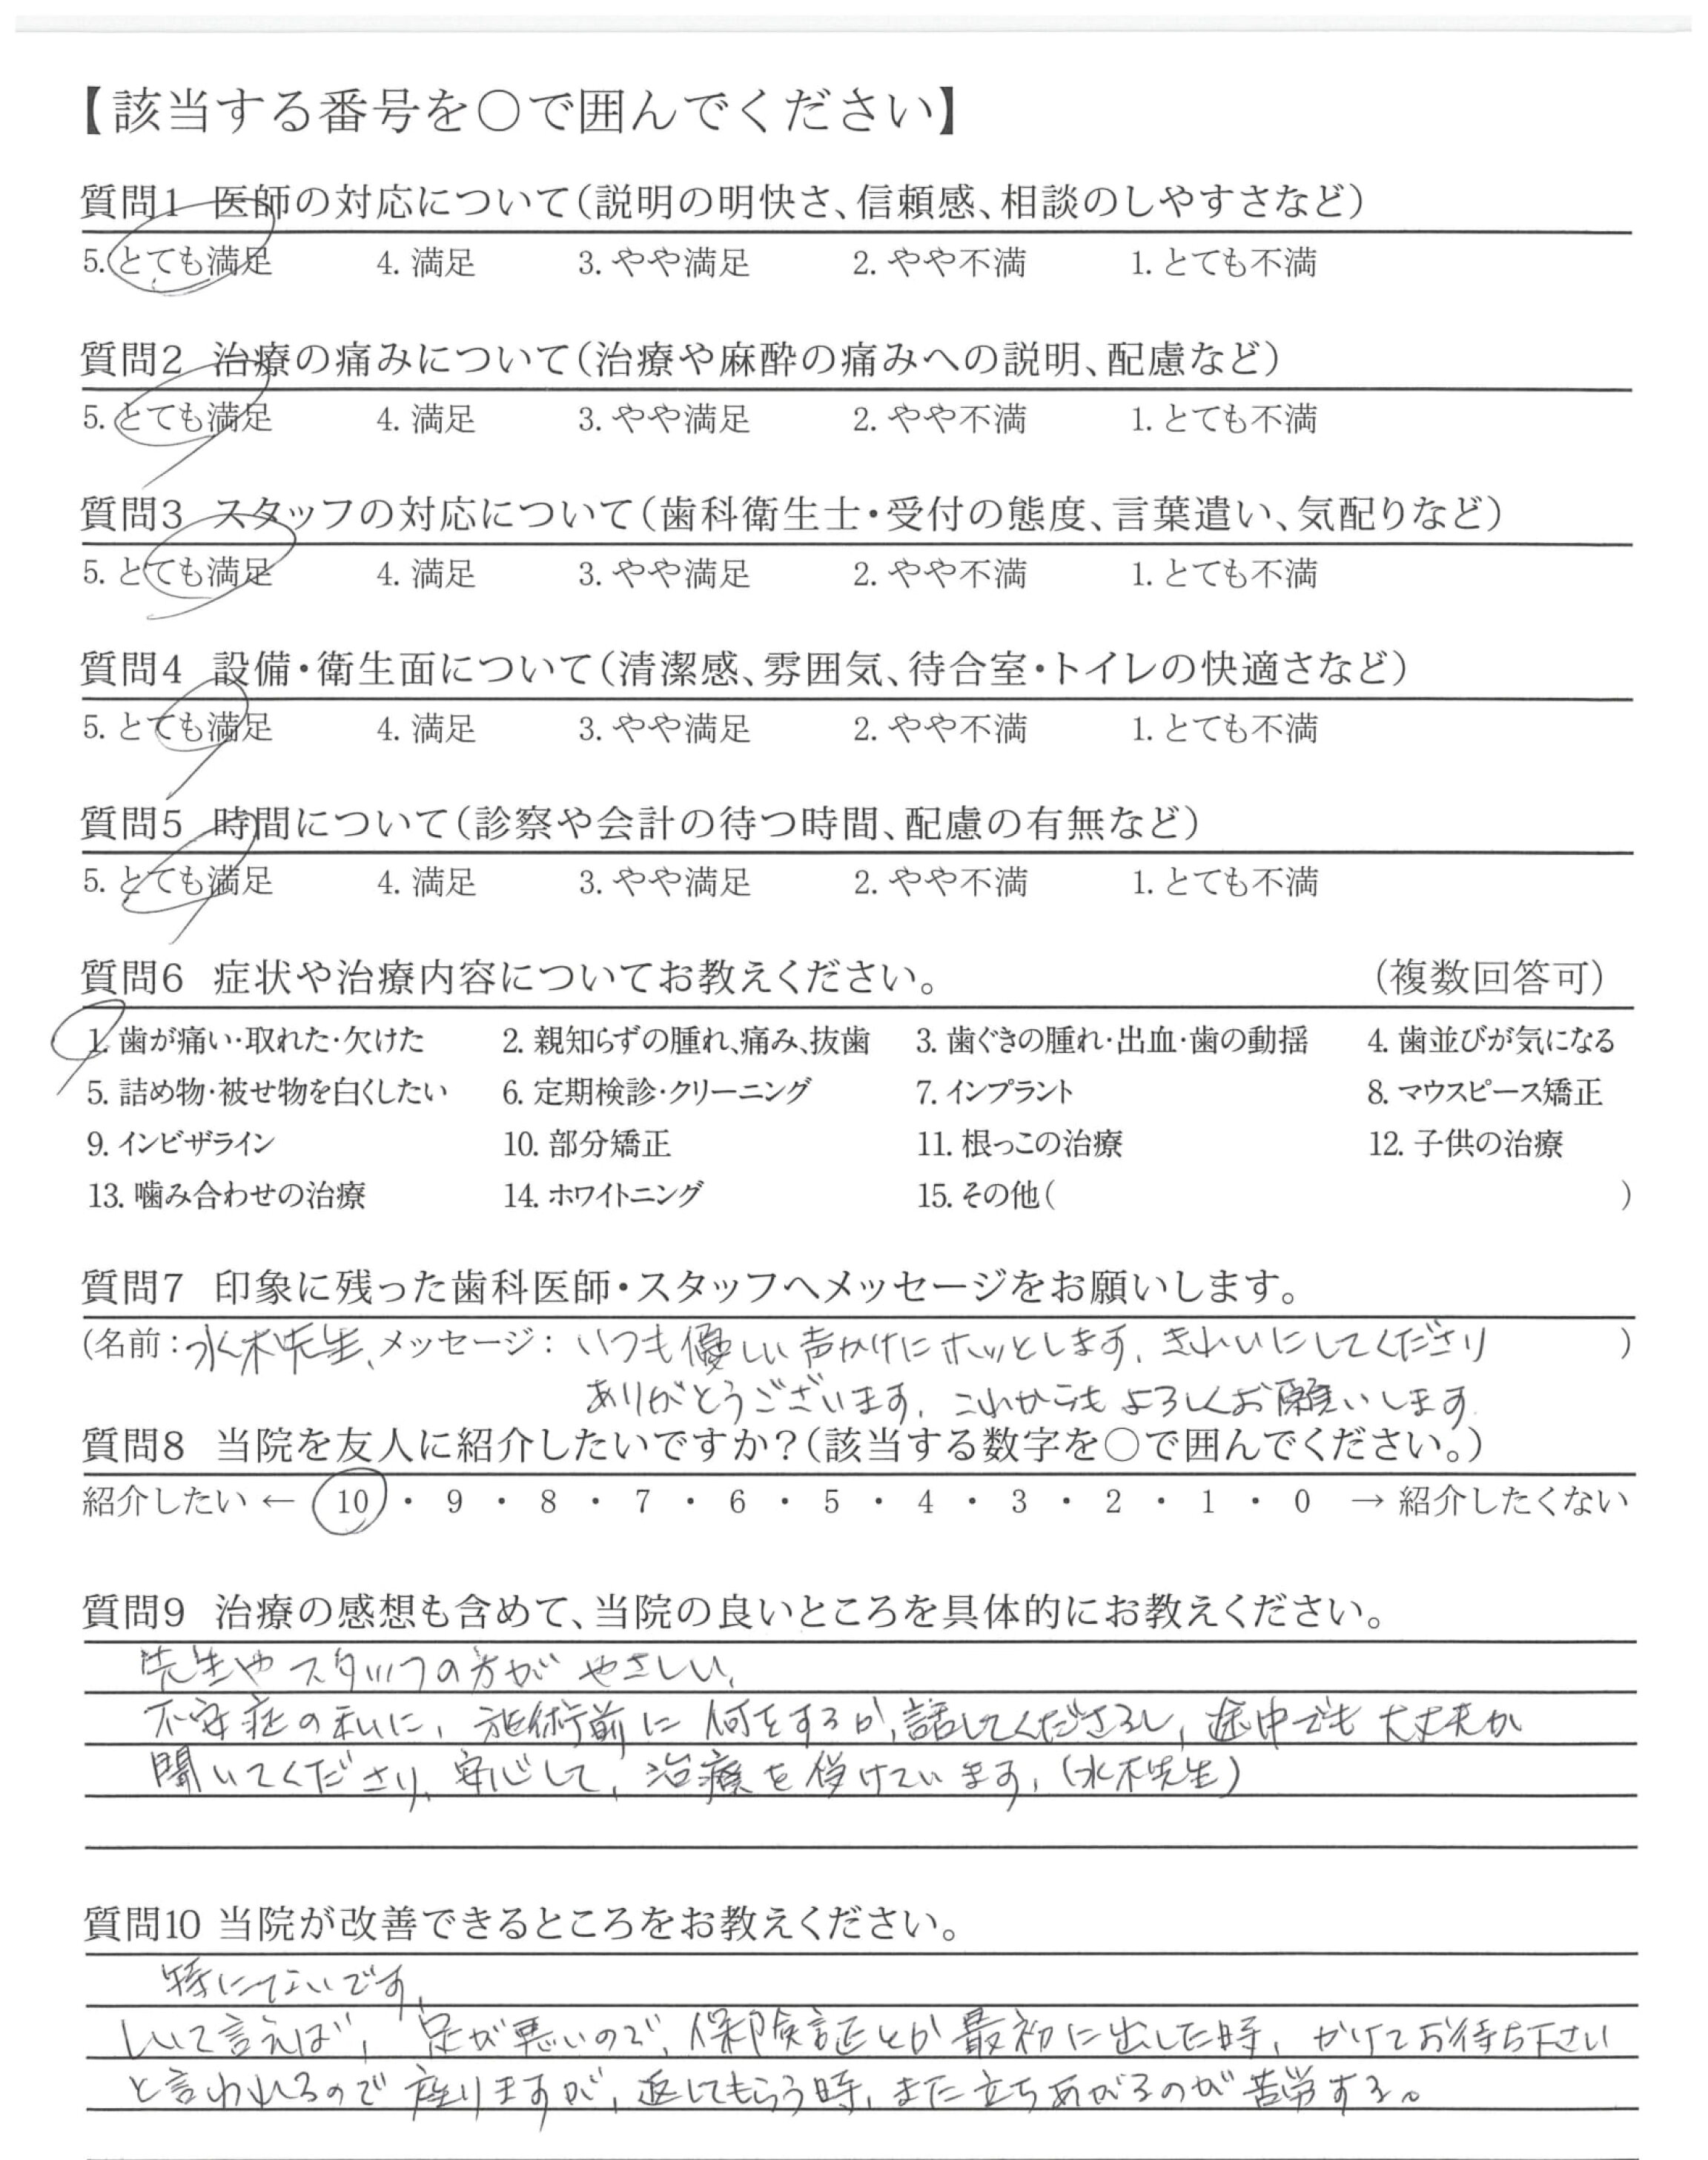 【該当する番号を○で囲んでください】
質問1 医師の対応について(説明の明快さ、信頼感、相談のしやすさなど)
5. とても満足 4. 満足 3. やや満足 2. やや不満 1. とても不満
質問2 治療の痛みについて(治療や麻酔の痛みへの説明、配慮など)
5. とても満足 4. 満足 3. やや満足 2. やや不満 1. とても不満
質問3 スタッフの対応について(歯科衛生士・受付の態度、言葉遣い、気配りなど)
5. とても満足 4. 満足 3. やや満足 2. やや不満 1. とても不満
質問4 設備・衛生面について(清潔感、雰囲気、待合室・トイレの快適さなど)
5. とても満足 4. 満足 3. やや満足 2. やや不満 1. とても不満
質問5 時間について(診察や会計の待つ時間、配慮の有無など)
5. とても満足 4. 満足 3. やや満足 2. やや不満 1. とても不満
質問6 症状や治療内容についてお教えください。 (複数回答可)
1. 歯が痛い・取れた・欠けた 2. 親知らずの腫れ、痛み、抜歯 3. 歯ぐきの腫れ・出血・歯の動揺 4. 歯並びが気になる
5. 詰め物・被せ物を白くしたい 6. 定期検診・クリーニング 7. インプラント 8. マウスピース矯正
9. インビザライン 10. 部分矯正 11. 根っこの治療 12. 子供の治療
13. 噛み合わせの治療 14. ホワイトニング 15. その他( )
質問7 印象に残った歯科医師・スタッフへメッセージをお願いします。
(名前:水木先生、メッセージ: いつも優しい声かけにホッとします。きれいにしてくださり )
ありがとうございます。これからもよろしくお願いします
質問8 当院を友人に紹介したいですか?(該当する数字を○で囲んでください。)
紹介したい ← 10 ・ 9 ・ 8 ・ 7 ・ 6 ・ 5 ・ 4 ・ 3 ・ 2 ・ 1 ・ 0 → 紹介したくない
質問9 治療の感想も含めて、当院の良いところを具体的にお教えください。
先生やスタッフの方がやさしい。
不安症の私に、施術前に何をするか、話してくださるし、途中でも大丈夫か
聞いてくださり、安心して、治療を受けています。(水木先生)
質問10 当院が改善できるところをお教えください。
特にないです。
しいて言えば、足が悪いので、保険証とか最初に出した時、かけてお待ち下さい
と言われるので座りますが、返してもらう時、また立ちあがるのが苦労する。